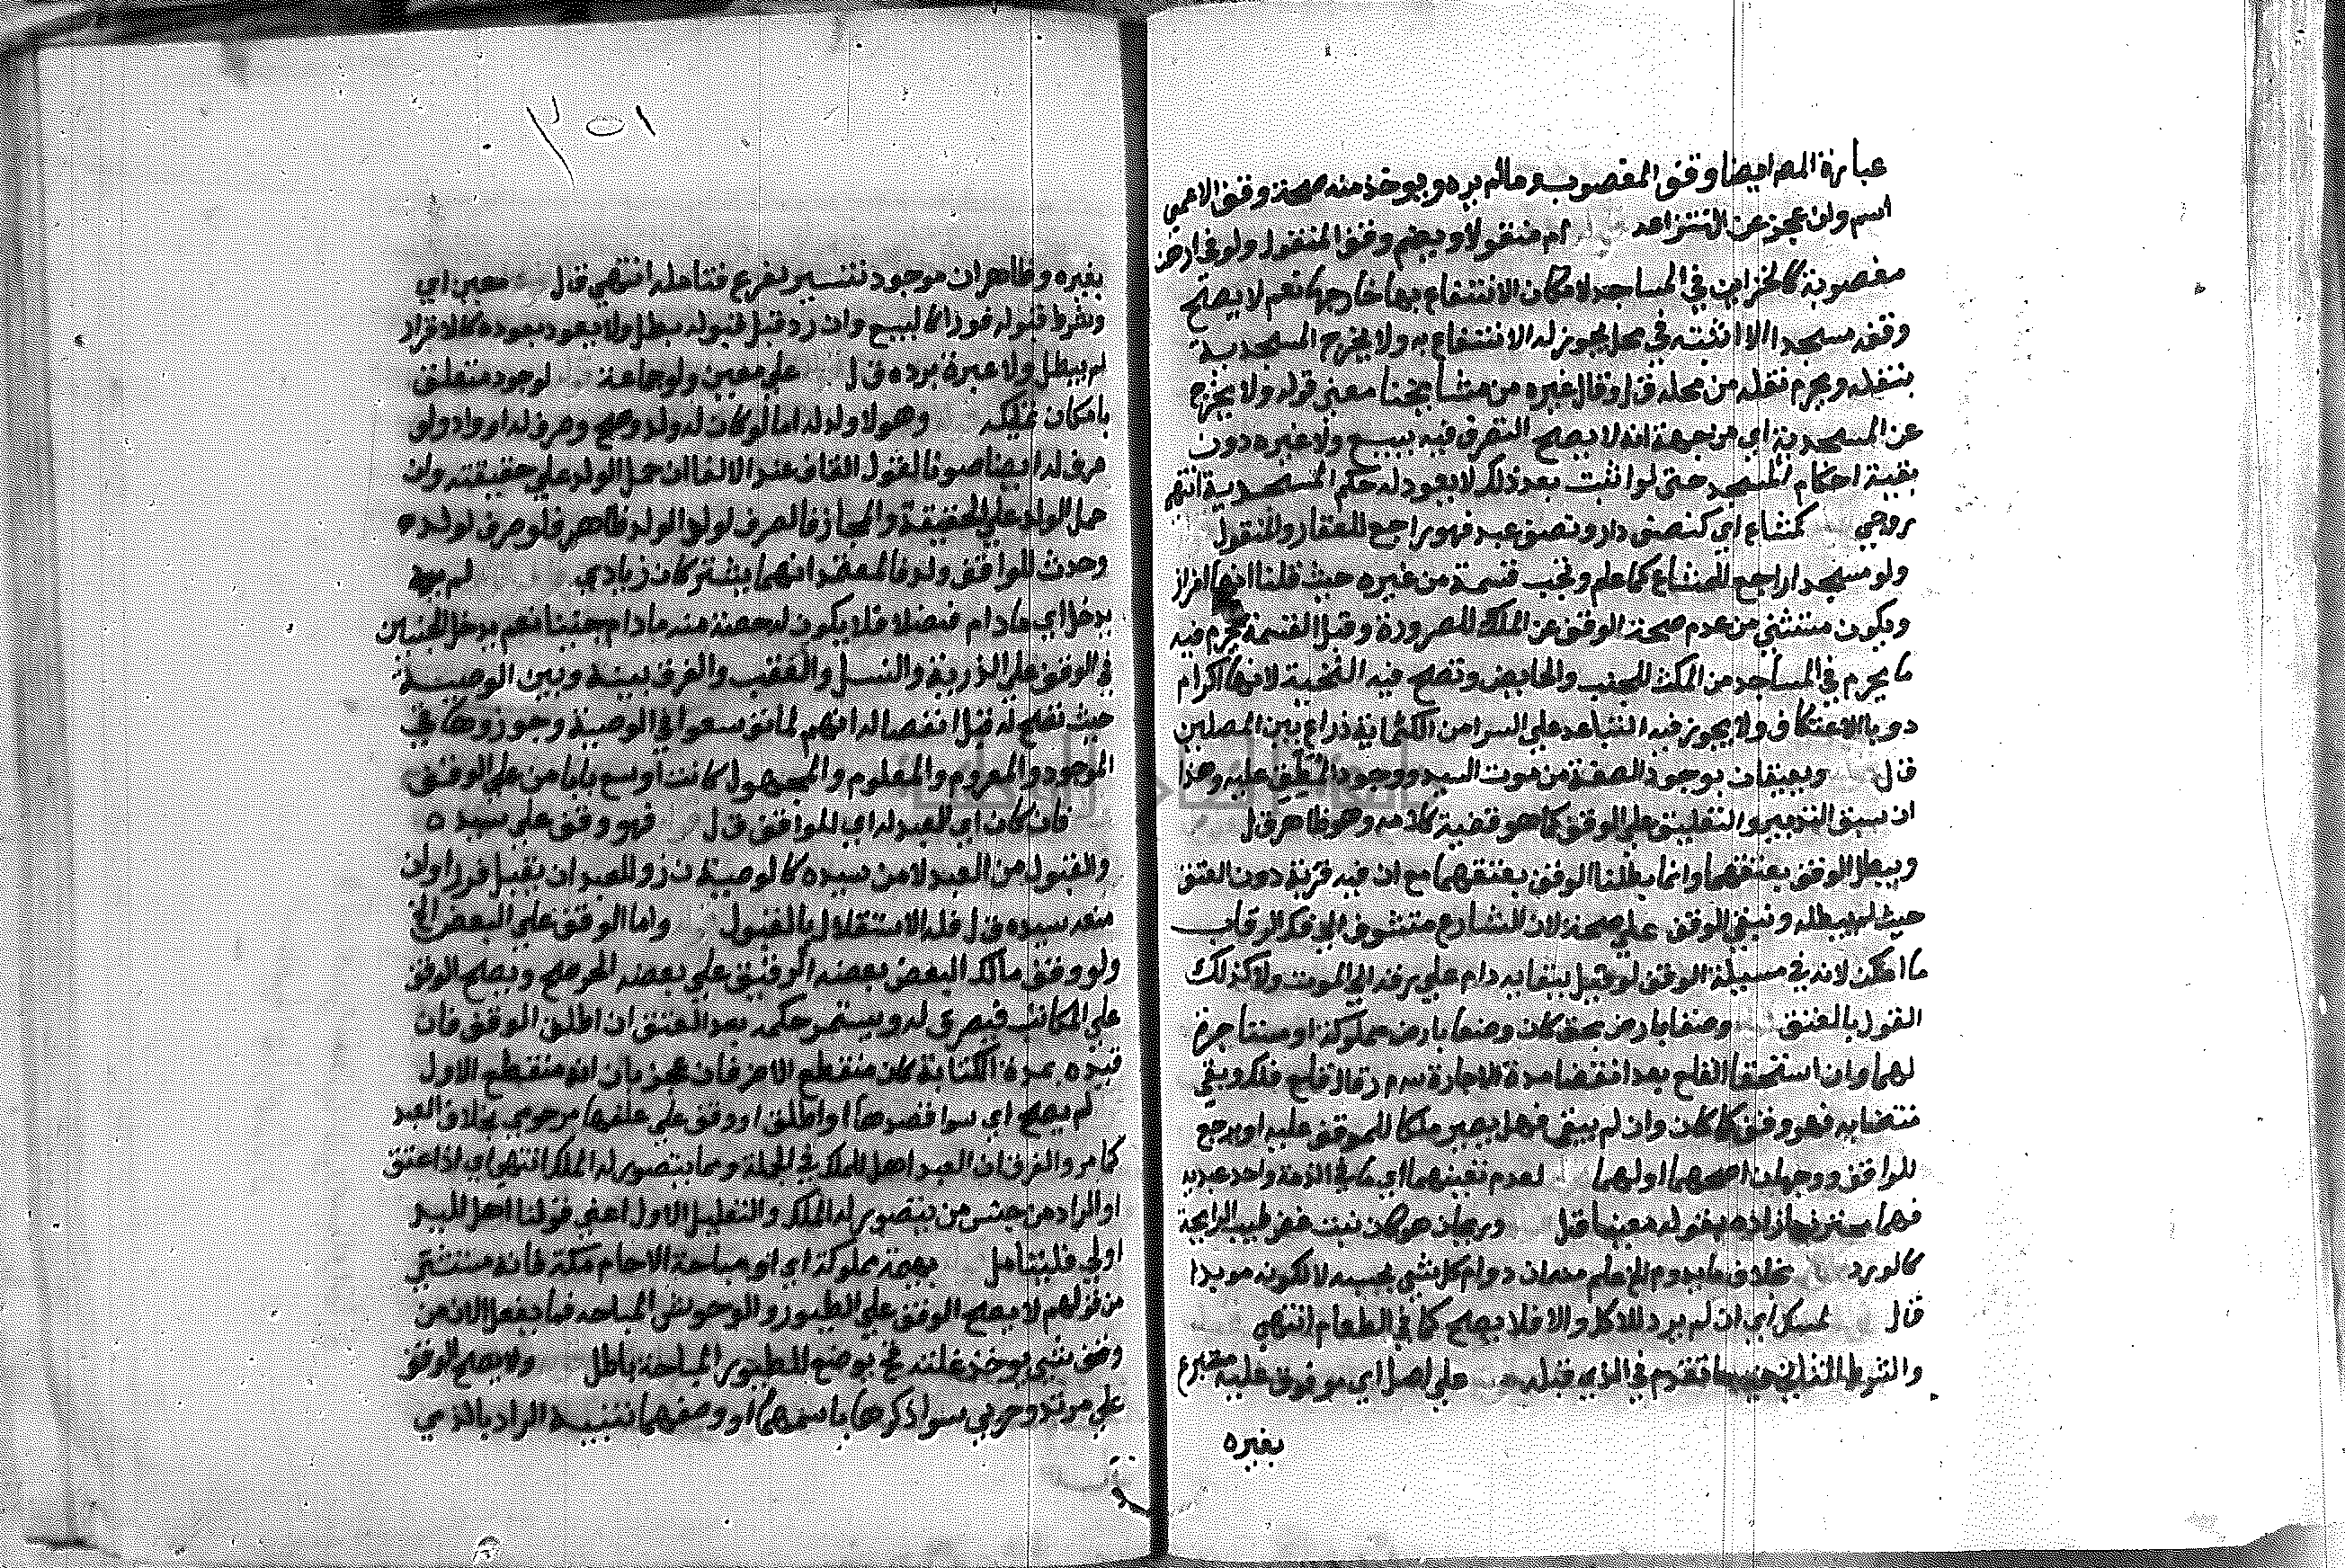 عبارة المص ايضا وقف المغصوب وما لم يره ويوخذ منه صحة وقف الاعمي
اسم وان عجز عن انتزاعه ام منقولا ويصح وقف المنقول ولو في ارض
مغصوبة كالخزاين في المساجد لامكان الانتفاع بها خارجها نعم لا يصح
وقفه مسجدا الا اثبته في محل يجوز له الانتفاع به ولا يخرج المسجدية
بنقله ويحرم نقله من محله ق ل وقال غيره من مشايخنا معني قوله ولا يخرج
عن المسجدية اي من جهة انه لا يصح التصرف فيه ببيع ولا غيره دون
بقية احكام المسجد حتي لو اثبت بعد ذلك لا يعود له حكم المسجدية انتهي
كمشاع اي كنصف دار ونصف عبد فهو راجع للعقار والمنقول
ولو مسجدا راجع للمشاع كما علم وتجب قسمة من غيره حيث قلنا انها افراز
ويكون مستثني من عدم صحة الوقف عن الملك للضرورة وقبل القسمة يحرم فيه
ما يحرم في المساجد من المكث للجنب والحايض وتصح فيه التحية لانها اكرام
دون الاعتكاف ولا يجوز فيه التباعد علي اكثر من ثلثماية ذراع بين المصلين
ق ل ويعتقان بوجود الصفة من موت السيد ووجود المعلق عليه وهذا
ان سبق التدبير والتعليق علي الوقف كما هو قضية كلامه وهو ظاهر ق ل
ويبطل الوقف بعتقهما وانما بطلنا الوقف بعتقهما مع ان فيه قربة دون العتق
حيث لم يبطله ونبقي الوقف علي صحته لان الشارع متشوف الي فك الرقاب
ما امكن لانه في مسيلة الوقف لو قيل ببقايه دام علي رقه الي الموت ولا كذلك
القول بالعتق وضعا بارض بحق كان وضعا بارض مملوكة او مستاجرة
لهما وان استحقا القلع بعد انقضا مدة الاجارة س م ر قال قلع ملكه وبقي
منتفعا به فهو وقف كما كان وان لم يبق فهل يصير ملكا للموقوف عليه او يرجع
للواقف وجهان اصحهما اولهما لعدم تعينهما اي ما في الذمة واحد عبديه
كالورد بخلاف ما يدوم دوام كل شي بحسبه لا كونه موبدا
قال لمسك اي ان لم يرد للاكل والا فلا يصح كما في الطعام انتهي
والشرط الثاني تقدم في الذي قبله علي اصل اي موقوف عليه معبرع
بغيره
١٥١
بغيره وظاهر ان موجود تفسير لفرع فتامله انتهي ق ل معين اي
وشرط قبوله فورا كالبيع وان رد قبل قبوله بطل ولا يعود بعوده كالاقرار
لم يبطل ولا عبرة برده ق ل علي معين ولو جماعة لوجود متعلق
بامكان تمليكه وهو لا ولد له اما لو كان له ولد صح وصرف له او ولد ولد
صرف له ايضا صونا لقول المكلف عن الالغا ان حمل الولد علي حقيقته وان
حمل الولد علي الحقيقة والمجاز فالصرف لولد الولد ظاهر فلو صرف لولده
وحدث للواقف ولد فالمعتمد انهما يشتركان زيادي لم يصح
يدخل اي ما دام منفصلا فلا يكون له حصة منه ما دام جنينا نعم يدخل الجنين
في الوقف علي الذرية والنسل والعقب والفرق بينه وبين الوصية
حيث تصح له قبل انفصاله انهم لما توسعوا في الوصية وجوزوها في
الموجود والمعدوم والمعلوم والمجهول كانت اوسع بابا من علي الوقف
فان كان اي العبد له اي للواقف ق ل فهو وقف علي سيده
والقبول من العبد لا من سيده كالوصية ن ز وللعبد ان يقبل فورا وان
منعه سيده ق ل فله الاستقلال بالقبول واما الوقف علي المبعض الخ
ولو وقف مالك البعض بعضه الرقيق علي بعضه الحر صح ويصح الوقف
علي المكاتب فيصرف له ويستمر حكمه بعد العتق ان اطلق الوقف فان
قيده بمدة الكتابة كان منقطع الاخر فان عجز بان انه منقطع الاول
لم يصح اي سوا قصدها او اطلق او وقف علي علفها مرحومي بخلاف العبد
كما مر والفرق ان العبد اهل للملك في الجملة وبما يتصور له الملك انتهي اي اذا عتق
او المراد من جنس من يتصور له الملك والتعليل الاول اعني قولنا اهل لليد
اولي فليتامل بهيمة مملوكة اي او مباحة الا حمام مكة فانه مستثني
من قولهم لا يصح الوقف علي الطيور والوحوش المباحة فما يفعل الان من
وقف شي يوخذ غلته قمح يوضع للطيور المباحة باطل ولا يصح الوقف
علي مرتد وحربي سوا ذكرهما باسمهما او وصفهما تنبيه المراد بالذمي